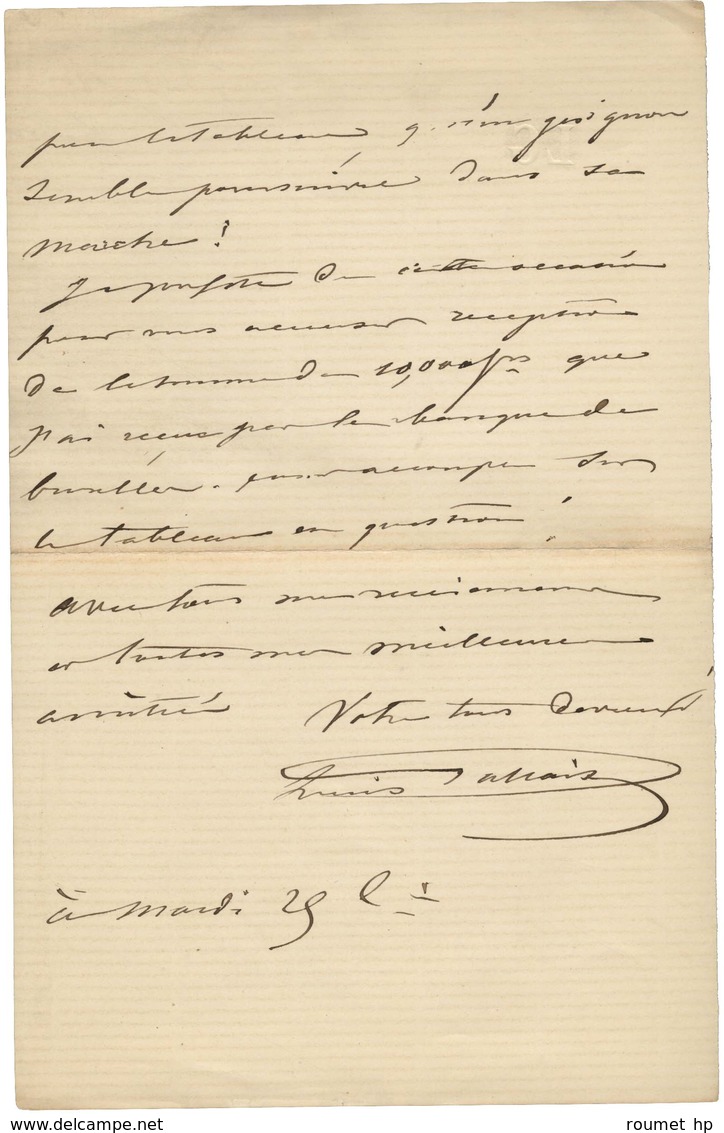 pour le tableau, qu'un guignon
semble poursuivre dans sa
marche !
Je profite de cette occasion
pour vous accuser reception
de la somme de 10,000 frs que
j'ai reçue par la banque de
bruxelles. en accompte sur
le tableau en question !
avec tous mes
et toutes mes meilleures
amitiés
Votre tout devoué
Louis Gallait
ce mardi 29
www.delcampe.net
roumet hp